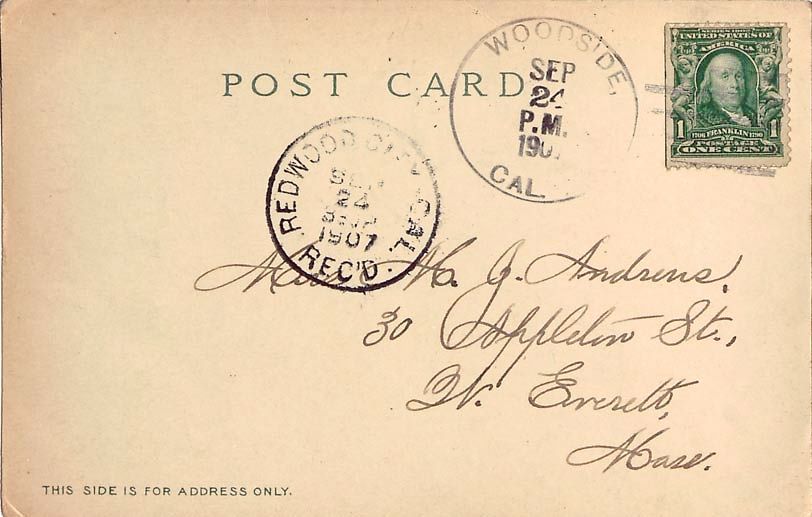 POST CARD
WOODSIDE,
SEP
24
P.M.
190
CAL.
SERIES 1902
UNITED STATES OF
AMERICA
1
1706 FRANKLIN 1790
POSTAGE
ONE CENT
REDWOOD CITY, CAL.
SEP
24
1907
REC'D.
M. J. Andrews,
30 Appleton St.,
W. Everett,
Mass.
THIS SIDE IS FOR ADDRESS ONLY.